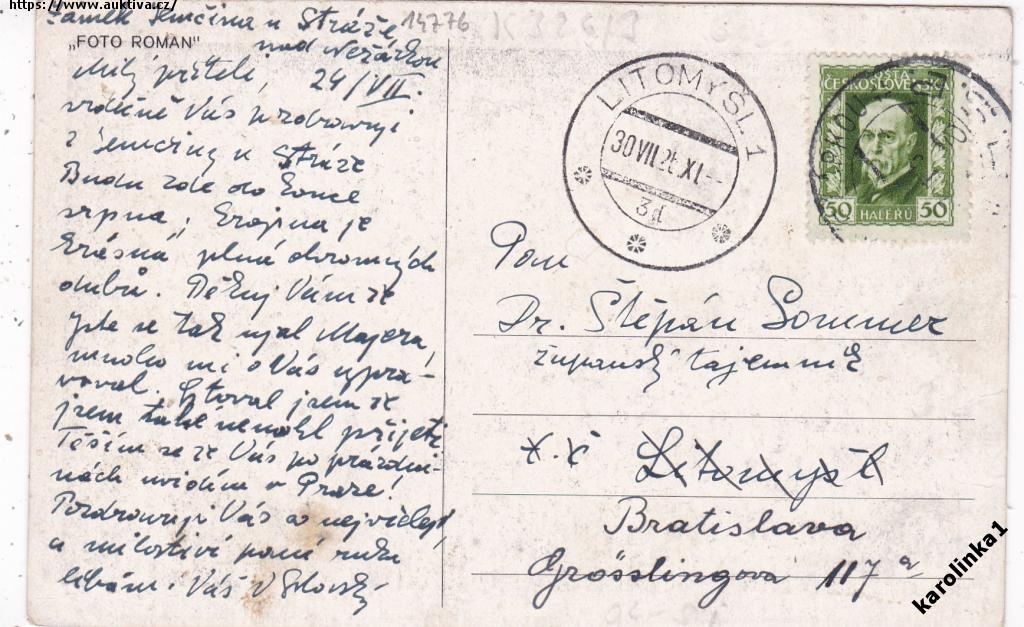 https://www.auktiva.cz/
Zámek Jemčina u Stráže
nad Nežárkou
14776
„FOTO ROMAN"
Milý příteli, 24/VII.
vděčně Vás pozdravuji
z Jemčiny u Stráže
Budu zde do konce
srpna, krajina je
krásná, plná ohromných
dubů. Děkuji Vám že
jste se tak ujal Majera,
mnoho mi o Vás vyprá-
voval. Litoval jsem že
jsem také nemohl přijeti.
Těším se že Vás po prázdni-
nách uvidím v Praze!
Pozdravuji Vás co nejvřeleji,
a milostivé paní ruku
líbám. Váš V
LITOMYŠL 1
30 VII 25 XI--
3d
POŠTA
ČESKOSLOVENSKO
50 HALÉŘŮ 50
Pan
Dr. Štěpán Sommer
županský tajemník
Litomyšl
Bratislava
Grösslingova 117 a
karolinka1